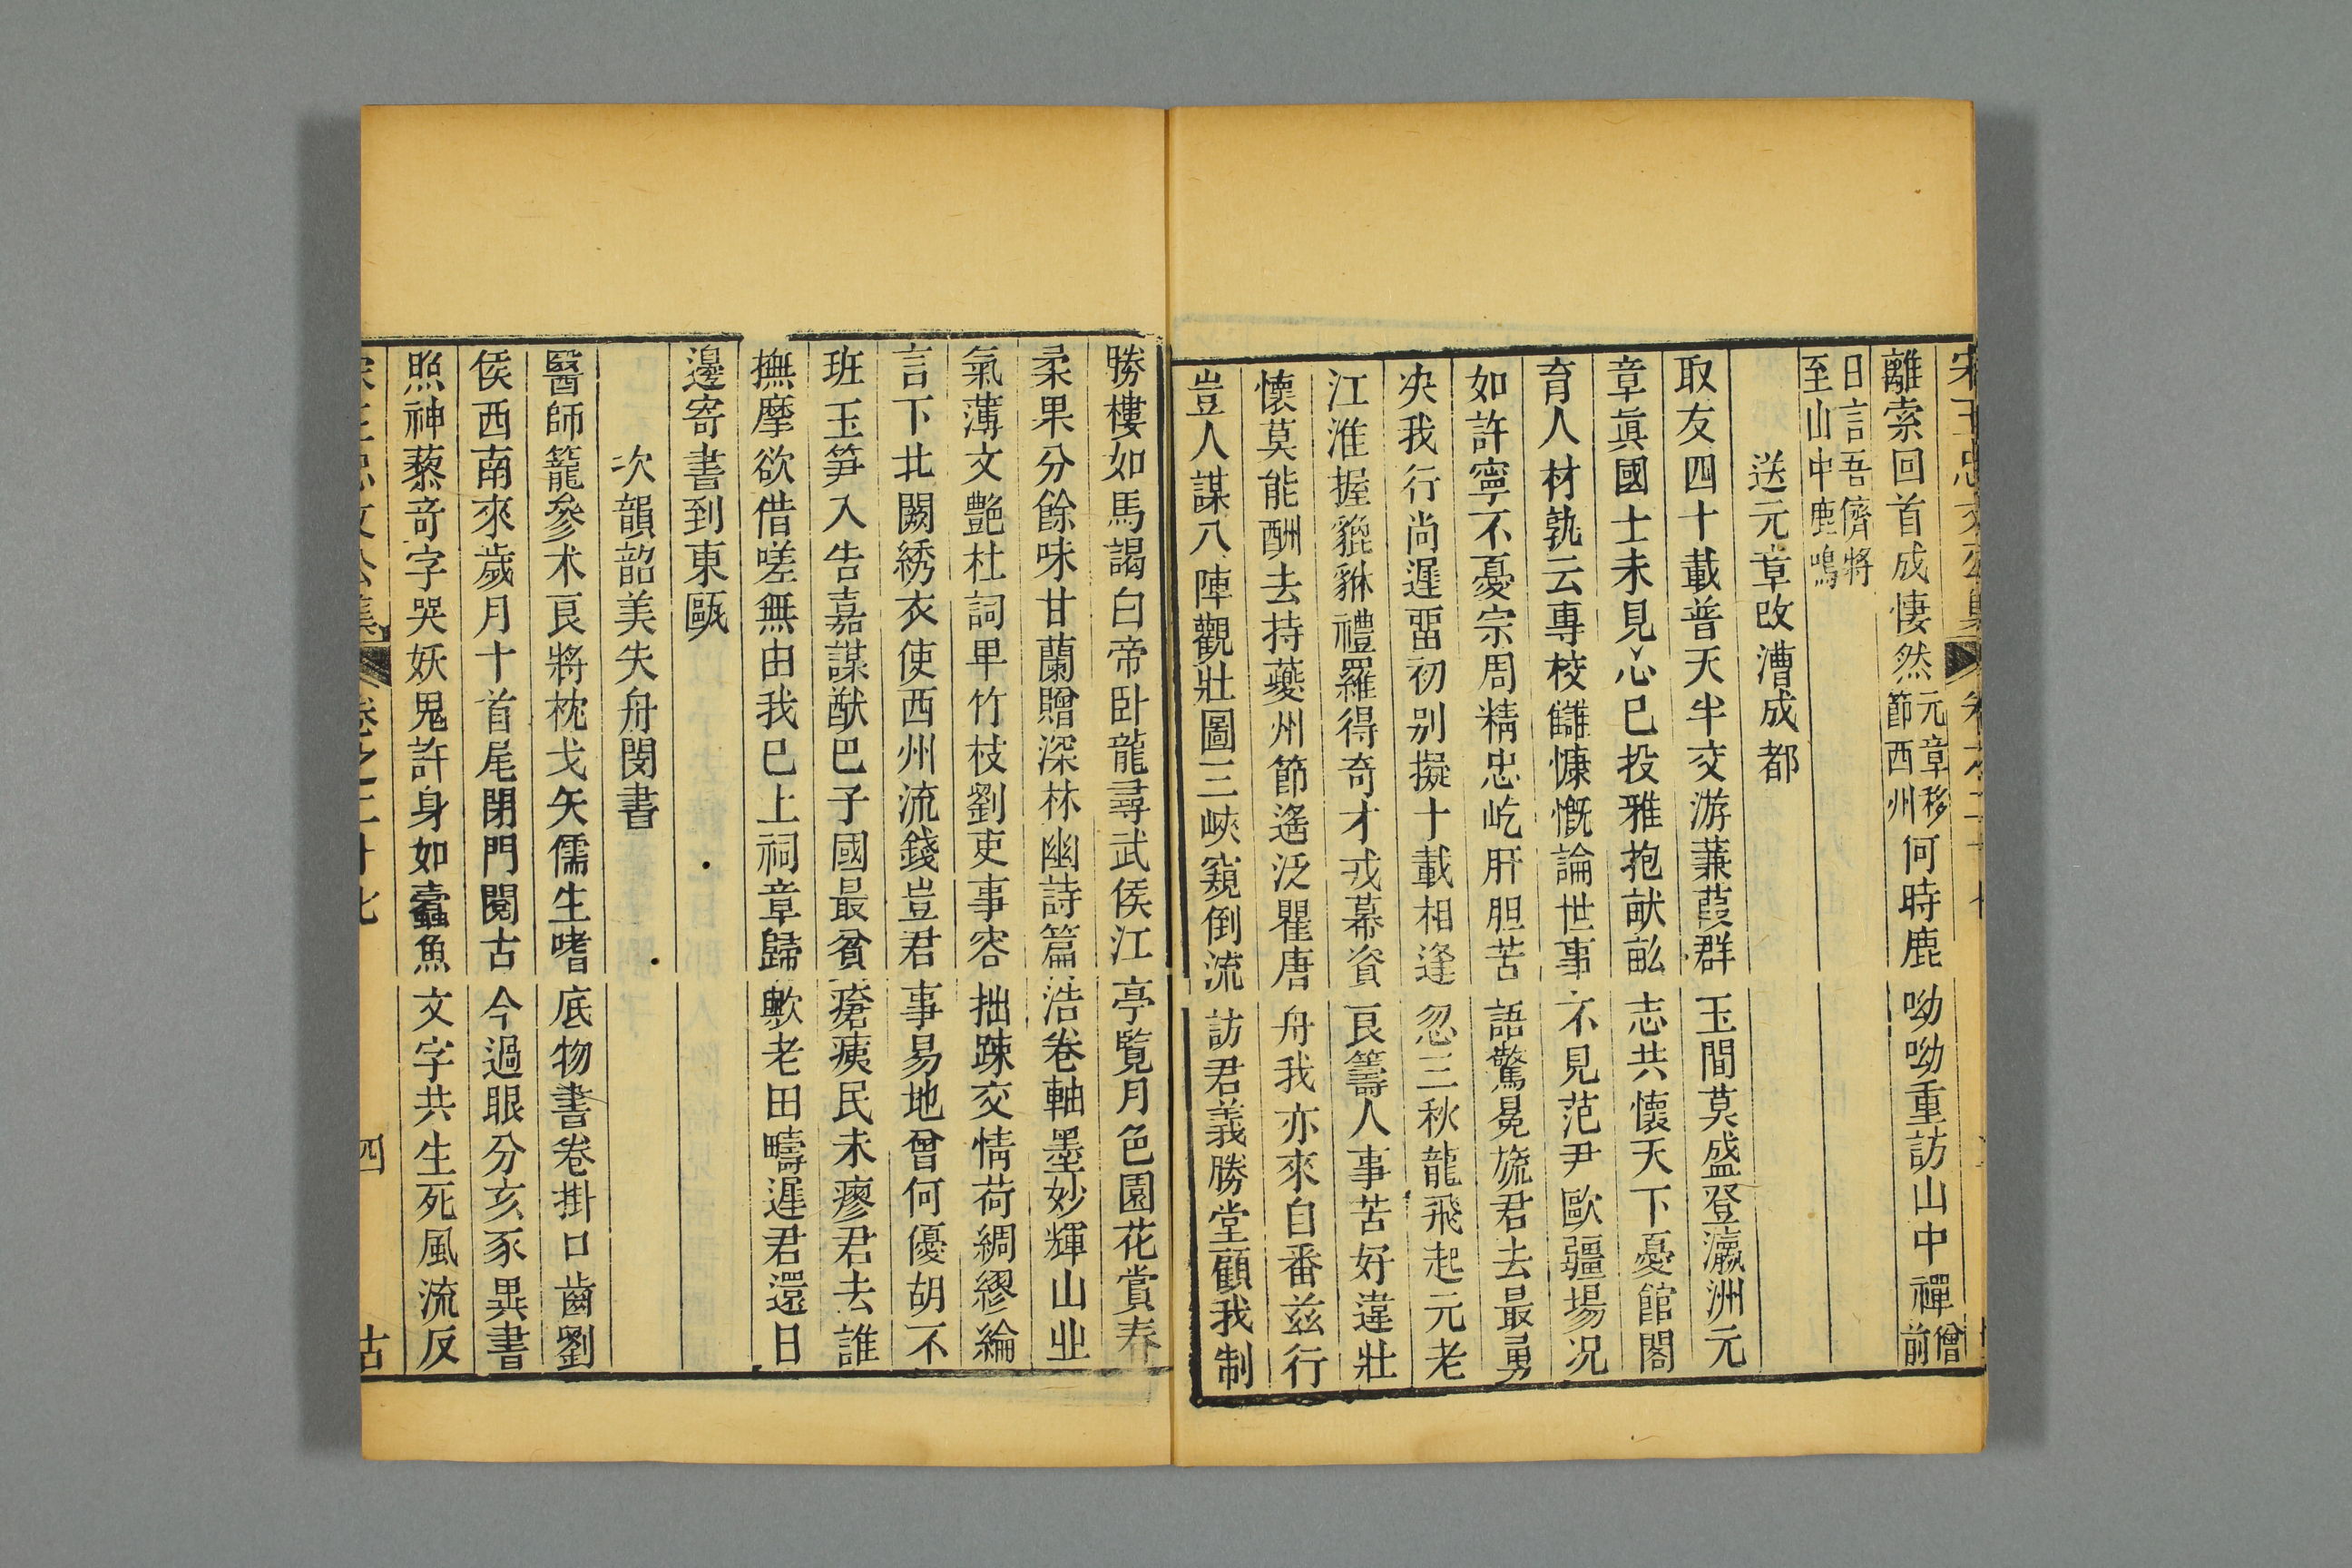 宋王忠文公集
離索回首成悽然元章移節西州何時鹿呦呦重訪山中禪僧前
日言吾儕將至山中鹿鳴
送元章改漕成都
取友四十載普天半交游蒹葭群玉間莫盛登瀛洲元
章眞國士未見心已投雅抱畎畝志共懷天下憂館閣
育人材孰云專校讎慷慨論世事不見范尹歐疆場況
如許寧不憂宗周精忠屹肝胆苦語驚冕旒君去最勇
决我行尚遲畱初别擬十載相逢忽三秋龍飛起元老
江淮握貔貅禮羅得奇才戎幕資良籌人事苦好違壯
懷莫能酬去持夔州節遙泛瞿唐舟我亦來自番兹行
豈人謀八陣觀壯圖三峽窺倒流訪君義勝堂顧我制
勝樓如馬謁白帝卧龍尋武侯江亭覧月色園花賞春
柔果分餘味甘蘭贈深林幽詩篇浩卷軸墨妙輝山丘
氣薄文艷杜詞卑竹枝劉吏事容拙踈交情荷綢繆綸
言下北闕綉衣使西州流錢豈君事易地曾何優胡不
班玉笋入告嘉謀猷巴子國最貧瘡痍民未瘳君去誰
撫摩欲借嗟無由我已上祠章歸歟老田疇遲君還日
邊寄書到東甌
次韻韶美失舟閔書
醫師籠參术良將枕戈矢儒生嗜底物書卷掛口齒劉
侯西南來歲月十首尾閉門閱古今過眼分亥豕異書
照神藜奇字哭妖鬼許身如蠹魚文字共生死風流反
宋王忠文公集 卷之二十七 四